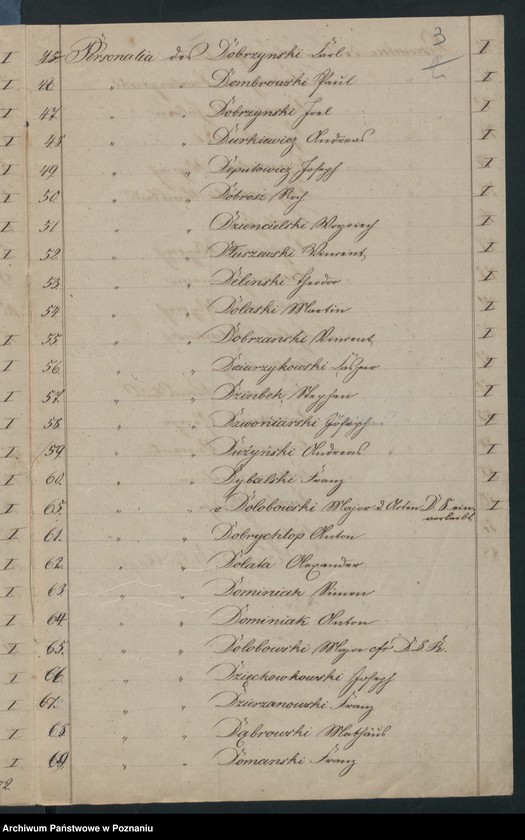 3
I 45 Personalia des Dobrzynski Carl I
I 46 " " Dombrowski Paul I
I 47. " " Dobrzynski Joel I
I 48 " " Durkiewicz Andreas I
I 49 " " Deputowicz Joseph I
I 50 " " Dobrosz Roch I
I 51 " " Dziencielski Woyciech I
I 52 " " Dłuszewski Vincent I
53 " " Delinski Theodor I
54 " " Dolaski Martin I
I 55 " " Dobrzanski Vincent I
56. " " Dziarzykowski Casper I
57. " " Dzinbek Stephan I
58 " " Dzwoniarski Joseph I
I 59 " " Dużyński Andreas I
60. " " Dybalski Franz I
65 " " v Dolobowski Major d Acten D. 8 ein- I
verleibt.
I 61. " " Dobrychłop Anton
62. " " Dolata Alexander
63 " " Dominiak Simon
64 " " Dominiak Anton
I 65. " " Dolobowski Major cfr D. 8.
I 66 " " Dzięchowkowski Joseph
I 67. " " Dzierzanowski Franz
I 68 " " Dąbrowski Mathäus
I 69 " " Domanski Franz
Archiwum Państwowe w Poznaniu